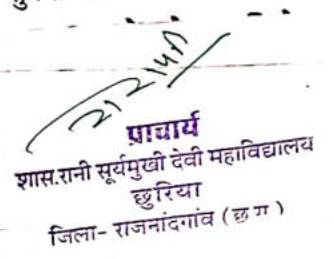 प्राचार्य
शास.रानी सूर्यमुखी देवी महाविद्यालय
छुरिया
जिला- राजनांदगांव (छ ग )